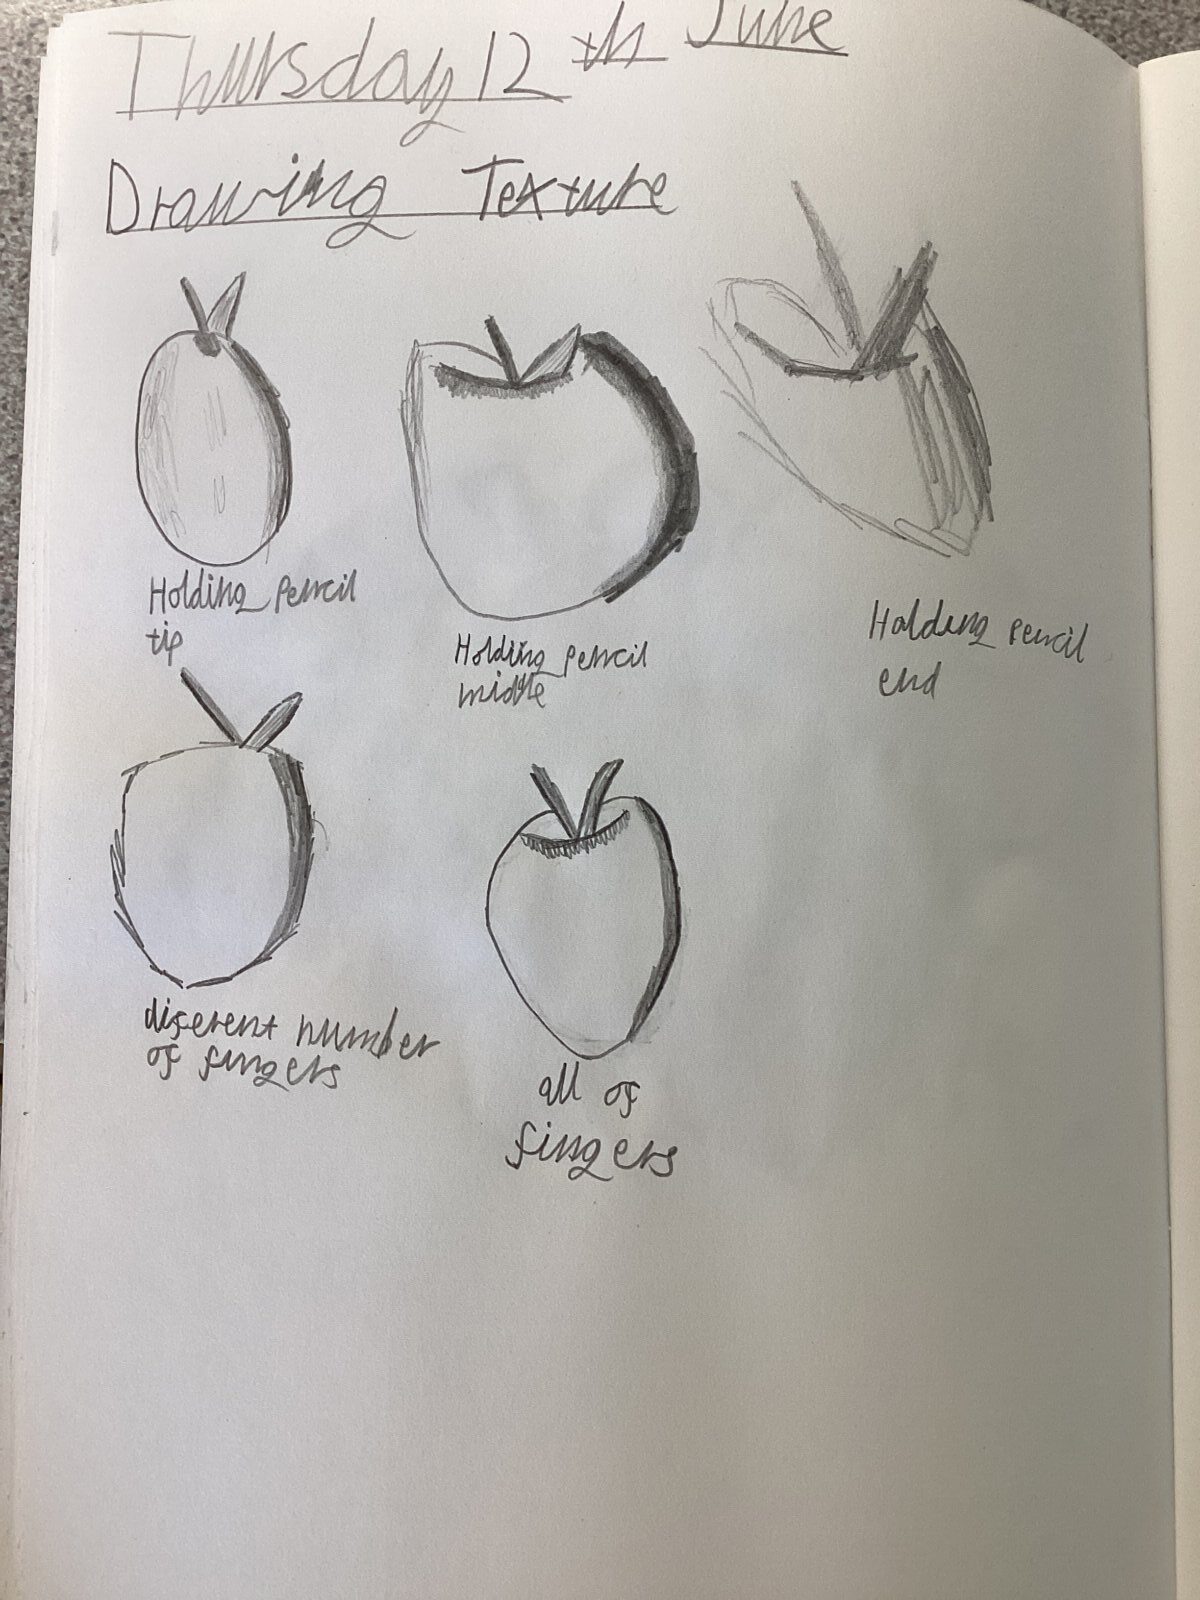 Thursday 12th June
Drawing Texture
Holding pencil
tip
Holding pencil
middle
Holding pencil
end
diferent number
of fingers
all of
fingers